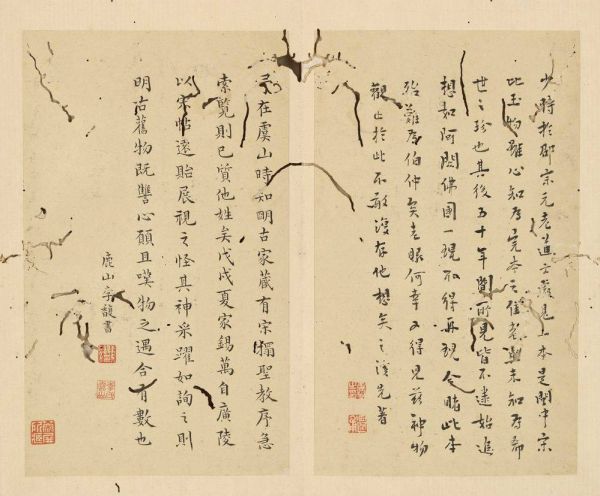 少時於宗元老處見一本是關中宗
此玉物雖心知為完本之佳未知為希
世之珍也其後五十年間所見皆不逮始追
想如阿閦佛國一現不得再現今睹此本
殆難為伯仲矣老眼何幸又得見茲神物
觀止於此不敢復存他想矣之溪先著
在虞山時知明古家藏有宋搨聖教序急
索覽則已質他姓矣戊戌夏家錫萬自廣陵
以宋帖遠貽展視之怪其神采躍如詢之則
明古舊物既讐心願且嘆物之遇合有數也
鹿山李馥書